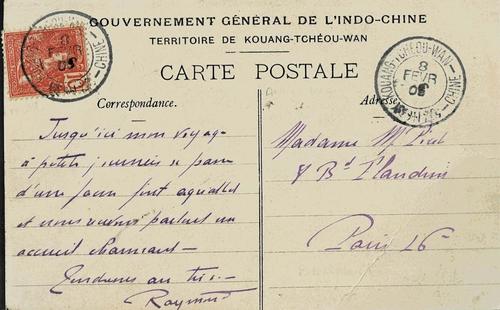 GOUVERNEMENT GÉNÉRAL DE L'INDO-CHINE
TERRITOIRE DE KOUANG-TCHÉOU-WAN
CARTE POSTALE
Correspondance.
Adresse
KOUANG-TCHÉOU-WAN
CHINE
8
FEVR
05
Jusqu'ici mon voyage
à petites journées se passe
d'une façon fort agréable
et nous recevons partout un
accueil charmant
Tendresses
Raymond
Madame
8 Bd Flandrin
Paris 16